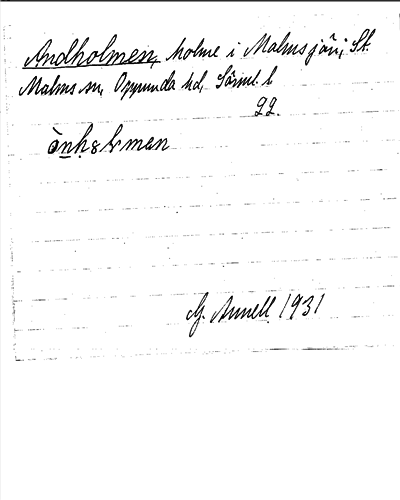 Andholmen, holme i Malmsjön, St.
Malms sn, Oppunda hd, Sörml. l
22.
G. Annell 1931